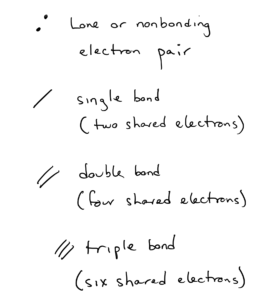 Lone or nonbonding
electron pair
single bond
(two shared electrons)
double bond
(four shared electrons)
triple bond
(six shared electrons)